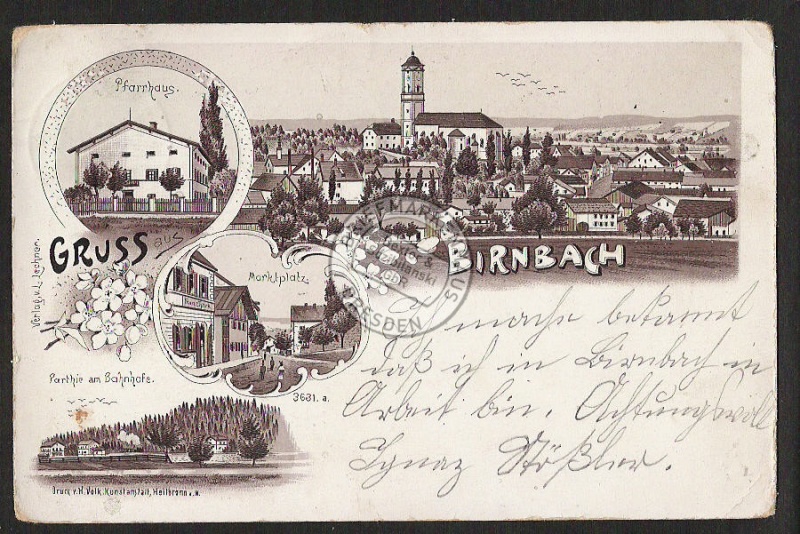 Pfarrhaus.
GRUSS aus BIRNBACH
Marktplatz.
Verlag v. L. Lechner.
Parthie am Bahnhofe.
3631. a.
Druck v. H. Volk, Kunstanstalt, Heilbronn a. N.
mache bekannt
daß ich in Birnbach in
Arbeit bin. Achtungsvoll
Ignaz Stößler.
BRIEFMARKENHAUS
DRESDEN